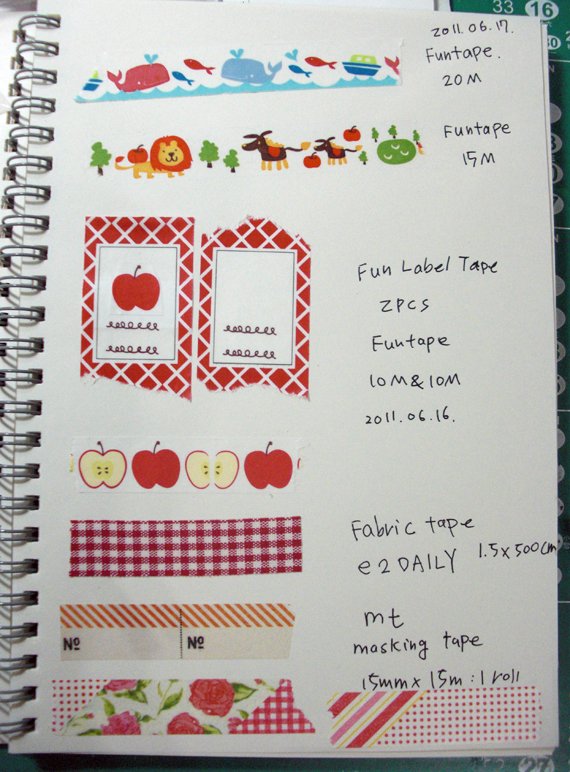 33 16
2011.06.17.
Funtape.
20M
Funtape
15M
Fun Label Tape
2PCS
Funtape
10M&10M
2011.06.16.
Fabric tape
e2DAILY 1.5×500(cm)
mt
masking tape
15mm×15m:1roll
Nº Nº
27